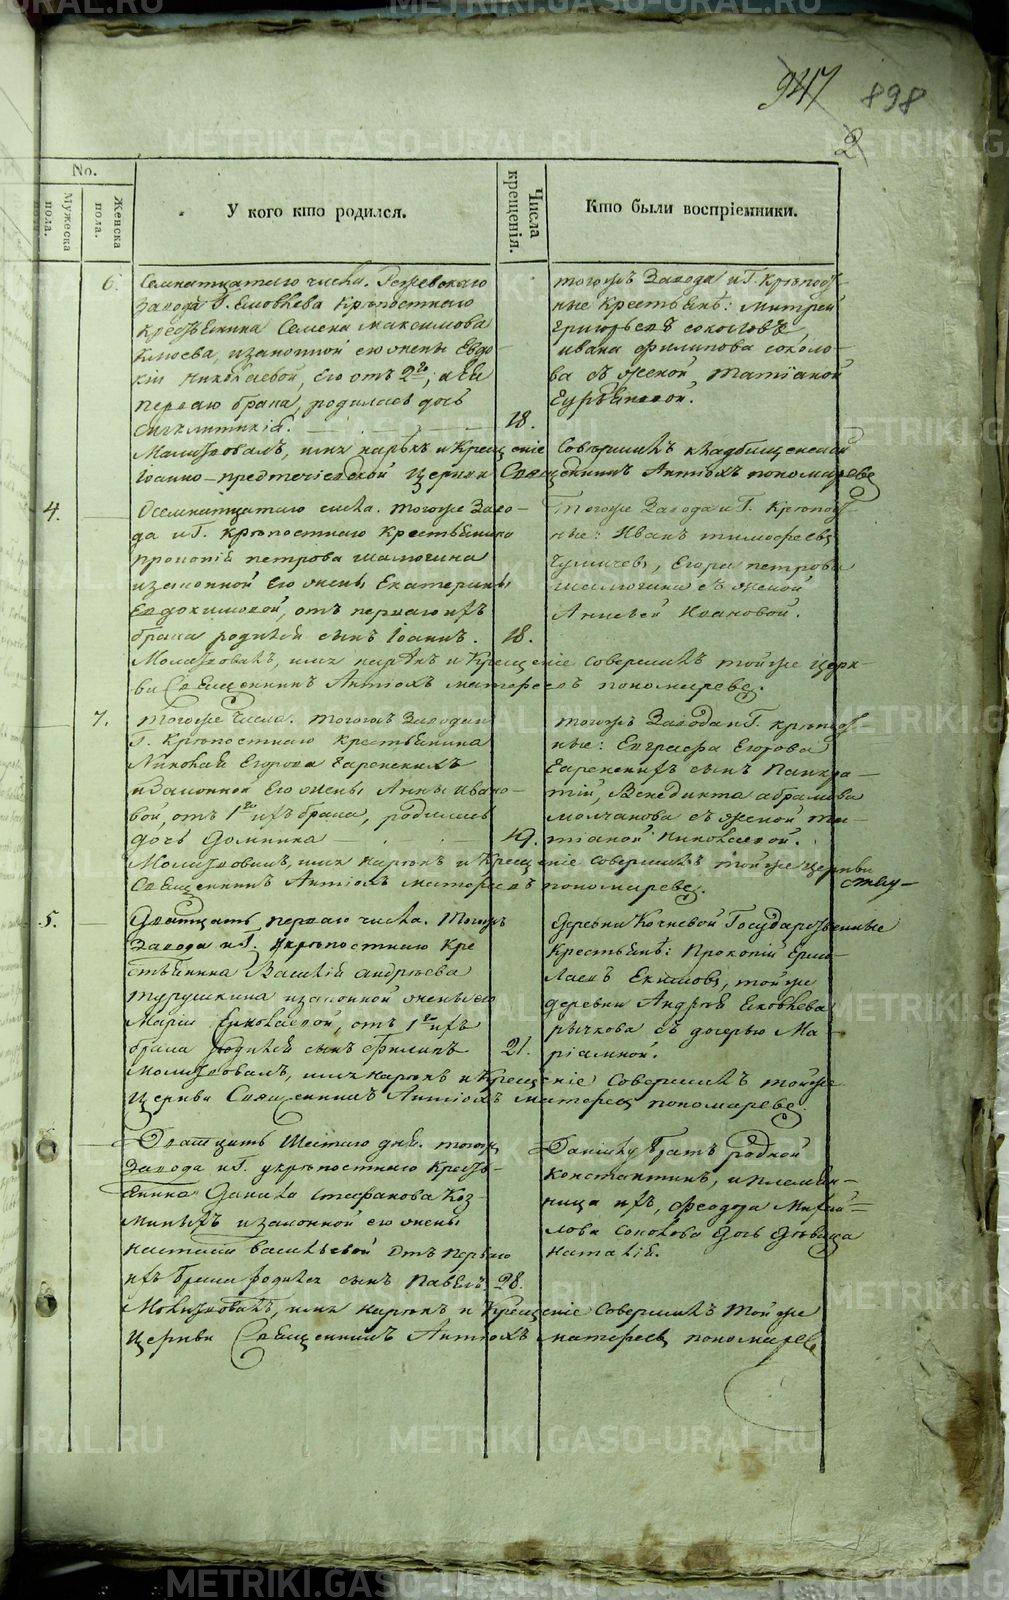 947 898
2
No.
Мужеска пола.
Женска пола.
У кого кто родился.
Числа крещенія.
Кто были воспріемники.
6. Семнатцатаго числа. Режевскаго
завода Г. Яковлева крѣпостнаго
крестьянина Семена Максимова
Клюева, и законной его жены Евдо-
кіи Николаевой, его отъ 2го, а ея
перваго брака, родилась дочь
18.
Молитвовалъ, имя нарекъ и Крещеніе Совершилъ кладбищенской
Іоанно-предтечіевской Церкви Священникъ Антіохъ пономаревъ
тогожъ Завода и Г. крѣпост
ные Крестьянѣ: Митрей
григорьевъ соколовъ,
ивана филипова соколо-
ва съ женой Татіаной
4. Осемнатцатаго числа. Тогоже Заво-
да и Г. крѣпостнаго Крестьянина
прокопія петрова шалюгина
изаконной его жены Екатерины
Евдокимовой, отъ перваго ихъ
брака родился сынъ Іоаннъ. 18.
Молитвовалъ, имя нарѣкъ и Крещеніе совершилъ тойже Церк-
ви Священникъ Антіохъ матфеевъ пономаревъ.
Тогоже Завода и Г. Крѣпост
ные: Иванъ тимофеевъ
Егора петрова
шалюгина съ женой
Ивановой.
7. тогоже Числа. тогожъ Завода и
Г. Крѣпостнаго крестьянина
Николая Егорова
изаконной его жены Анны ивано-
вой, отъ 1го ихъ брака, родилась
дочь Домника 19.
Молитвовалъ, имя нарѣкъ и Крещеніе совершилъ тойже церкви
Священникъ Антіохъ матфеевъ пономаревъ.
тогожъ Завода и Г. крѣпост
ные: Евграфа Егорова
сынъ Панкра-
тій, Венедикта абрамова
молчанова съ женой та-
тіаной Николаевой.
5. Дватцать перваго числа. Тогожъ
Завода и Г. крѣпостнаго Кре
стьянина Василія андреева
турушкина изаконной жены его
Маріи Яковлевой, отъ 1го ихъ
брака родился сынъ Филипъ 21.
Молитвовалъ, имя нарѣкъ и Крещеніе Совершилъ тойже
Церкви Священникъ Антіохъ матфеевъ пономаревъ.
деревни Кочневой Государственные
Крестьянѣ: Прокопій Ермо-
лаевъ Екимовъ, тойже
деревни Андрея Яковлева
рычкова съ дочерью Ма-
ріамной.
Дватцать Шестаго дня. тогожъ
Завода и Г. крѣпостнаго Кресть-
янина Данила стефанова Коз-
миныхъ изаконной его жены
настасіи васильевой отъ перваго
ихъ брака родился сынъ Павелъ. 28.
Молитвовалъ, имя нарѣкъ и Крещеніе Совершилъ Тойже
церкви Священникъ Антіохъ матфеевъ пономаревъ
Данилу братъ родной
Константинъ, и племян-
ница ихъ, Феодора Михай-
лова дочь дѣвица
наталія.
METRIKI.GASO-URAL.RU